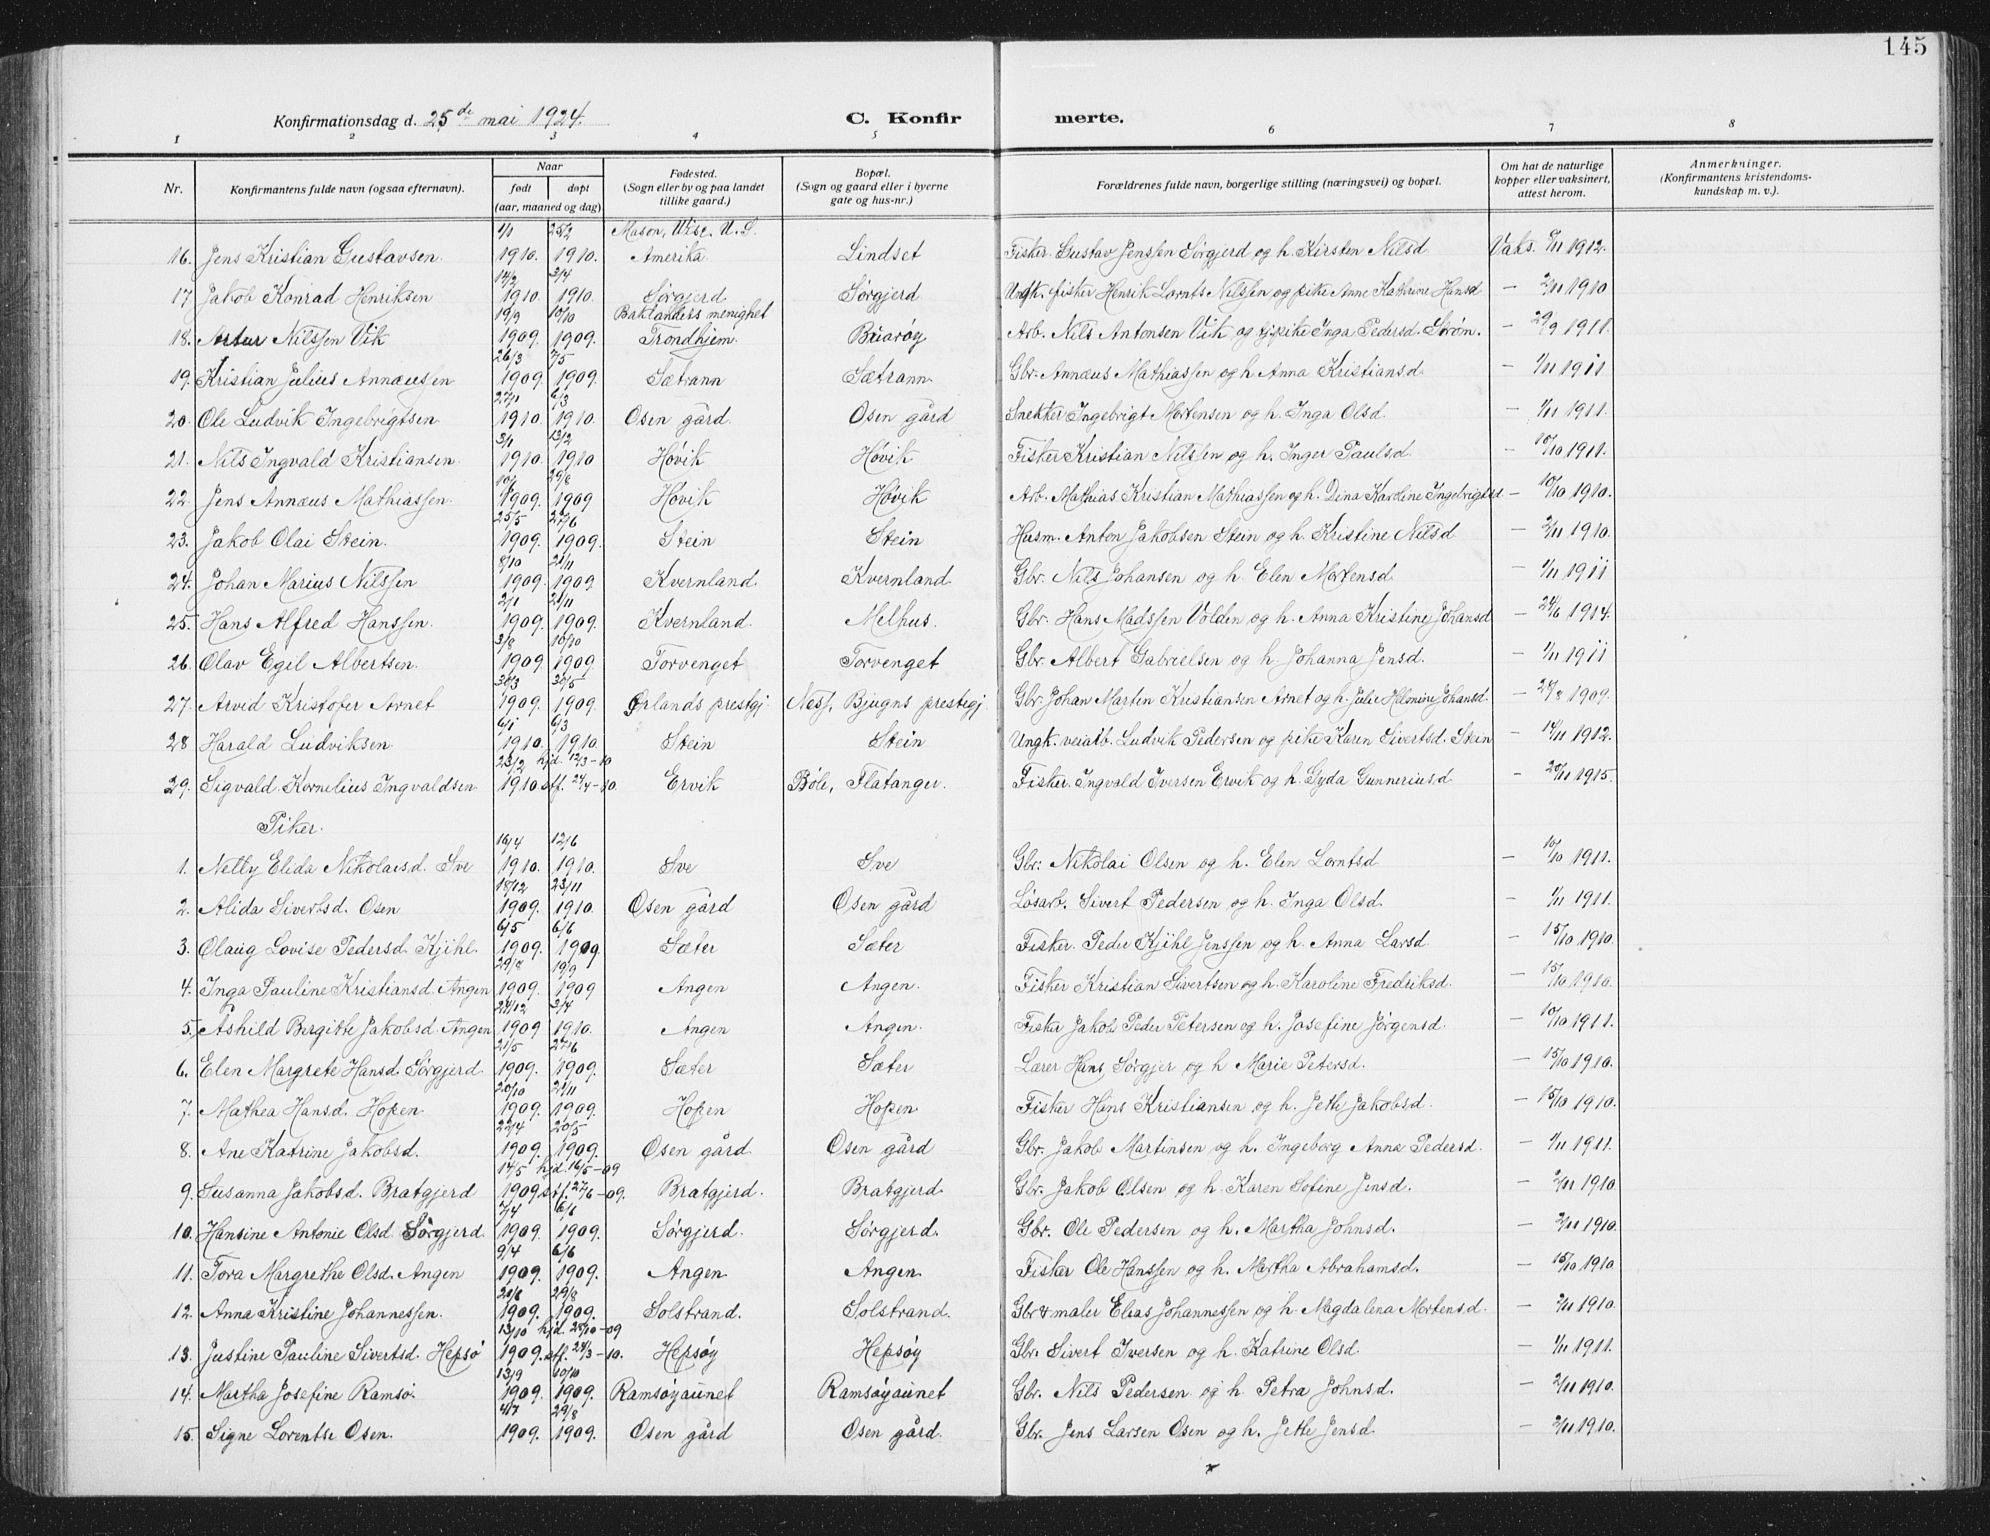 145
Konfirmationsdag d. 25de mai 1924. C. Konfir merte.
1 2 3 4 5 6 7 8
Nr. Konfirmantens fulde navn (ogsaa efternavn). Naar født døpt (aar, maaned og dag) Fødested. (Sogn eller by og paa landet tillike gaard.) Bopæl. (Sogn og gaard eller i byerne gate og hus-nr.) Forældrenes fulde navn, borgerlige stilling (næringsvei) og bopæl. Om hat de naturlige kopper eller vaksinert, attest herom. Anmerkninger. (Konfirmantens kristendomskundskap m. v.).
1/1 25/2 Mason, Wisc. U.S.
16. Jens Kristian Gustavsen. 1910. 1910. Amerika Lindset Fisker Gustav Jenssen Sørgjerd og h. Kirsten Nilsd. Vaks. /11 1912.
14/2 3/4
17 Jakob Konrad Henriksen 1910 1910. Sørgjerd Sørgjerd Ungk. fisker Henrik Lornts Nilssen og pike Anne Kathrine Hansd — 2/11 1910
19/9 10/10 Baklandets menighet
18. Artur Nilssen Vik 1909. 1909. Trondhjem. Buarøy Arb. Nils Antonsen Vik og pike Inga Pedersd. Strøm. — 29/9 1911.
26/3 7/5
19. Kristian Julius Annæussen 1909. 1909. Sætrann Sætrann Gbr. Annæus Mathiassen og h. Anna Kristiansd. — 1/11 1911
27/1 6/3
20. Ole Ludvik Ingebrigtsen 1910 1910. Osen gård. Osen gård Snekker Ingebrigt Mortensen og h. Inga Olsd. — 1/11 1911.
3/1 13/2
21. Nils Ingvald Kristiansen. 1910. 1910 Høvik Høvik Fisker Kristian Nilssen og h. Inger Paulsd. — 10/10 1911.
29/8
22. Jens Annæus Mathiassen. 1909. 1909 Høvik Høvik Arb. Mathias Kristian Mathiassen og h. Dina Karoline Ingebrigtsd — 10/10 1910.
25/5 27/6
23. Jakob Olai Stein. 1909. 1909. Stein Stein Husm. Anton Jakobsen Stein og h. Kristine Nilsd — 2/11 1910.
8/10 21/11
24. Johan Marius Nilssen 1909. 1909. Kvernland. Kvernland. Gbr. Nils Johansen og h. Elen Mortensd. — 1/11 1911
2/1 21/11
25. Hans Alfred Hanssen. 1909. 1909. Kvernland. Melhus. Gbr. Hans Madssen Volden og h. Anna Kristine Johansd — 24/6 1914.
3/8 10/10
26. Olav Egil Albertsen. 1909. 1909. Torvenget Torvenget Gbr. Albert Gabrielsen og h. Johanna Jensd. — 1/11 1911
30/3 30/5
27. Arvid Kristofer Arnet 1909. 1909. Ørlands prestgj. Ness, Bjugns prestegj. Gbr. Johan Martin Kristiansen Arnet og h. Julie Helmine Johansd. — 24/8 1909.
6/1 6/3
28 Harald Ludviksen 1910. 1910. Stein Stein Ungk. veiarb. Ludvik Pedersen og pike Karen Sivertsd. Stein — 14/11 1912.
23/2 hjd. 12/3-10
29. Sigvald Kornelius Ingvaldsen 1910 stf. 24/4-10. Ervik Bøle, Flatanger. Fisker. Ingvald Iversen Ervik og h. Gyda Gunneriusd — 20/11 1915.
Piker.
16/4 12/6
1. Nelly Elida Nikolaisd. Sve 1910. 1910. Sve Sve Gbr: Nikolai Olsen og h. Elen Lorntsd — 10/10 1911.
18/12 23/11
2. Alida Sivertsd. Osen 1909. 1910. Osen gård Osen gård Løsarb. Sivert Pedersen og h. Inga Olsd. — 1/11 1911.
6/5 6/6
3. Olaug Lovise Pedersd. Kjihl. 1909. 1909. Sæter Sæter Fisker. Peder Kjihl Jenssen og h. Anna Larsd. — 15/10 1910.
29/8 19/9
4. Inga Pauline Kristiansd. Angen 1909. 1909 Angen Angen. Fisker Kristian Sivertsen og h. Karoline Fredriksd. — 15/10 1910.
24/12 3/4
5. Åshild Birgitte Jakobsd. Angen 1909 1910. Angen Angen. Fisker Jakob Peder Petersen og h. Josefine Jørgensd. — 10/10 1911.
21/5 27/6
6. Elen Margrete Hansd. Sørgjerd. 1909. 1909. Sæter Sæter Lærer Hans Sørgjer og h. Marie Petersd. — 15/10 1910.
20/10 21/11
7. Mathea Hansd. Hopen 1909. 1909. Hopen Hopen Fisker Hans Kristiansen og h. Jette Jakobsd. — 15/10 1910.
22/4 20/5
8. Ane Katrine Jakobsd. 1909. 1909. Osen gård. Osen gård Gbr. Jakob Martinsen og h. Ingeborg Anna Pedersd. — 1/11 1911.
14/5 hjd. 16/5-09
9. Susanna Jakobsd. Bratgjerd 1909 stf. 27/6-09. Bratgjerd. Bratgjerd. Gbr. Jakob Olsen og h. Karen Sofine Jensd. — 2/11 1910
7/4 6/6
10. Hansine Antonie Olsd. Sørgjerd. 1909. 1909. Sørgjerd. Sørgjerd. Gbr. Ole Pedersen og h. Martha Johnsd. — 2/11 1910.
9/4 6/6
11. Tora Margrethe Olsd. Angen 1909. 1909. Angen Angen. Fisker Ole Hanssen og h. Martha Abrahamsd. — 15/10 1910
29/8
12. Anna Kristine Johannessen. 1909. 1909. Solstrand. Solstrand. Gbr & maler Elias Johannessen og h. Magdalena Mortensd. — 2/11 1910.
13/10 hjd. 28/10-09
13. Justine Pauline Sivertsd. Hepsø 1909. stf. 24/3-10. Hepsøy Hepsøy Gbr. Sivert Iversen og h. Katrine Olsd. — 1/11 1911.
13/9 10/10
14. Martha Josefine Ramsø. 1909. 1909. Ramsøyaunet Ramsøyaunet Gbr. Nils Pedersen og h. Petra Johnsd. — 2/11 1910.
4/7 29/8
15. Signe Lorentse Osen. 1909. 1909. Osen gård Osen gård. Gbr. Jens Larsen Osen og h. Jette Jensd. — 2/11 1910.